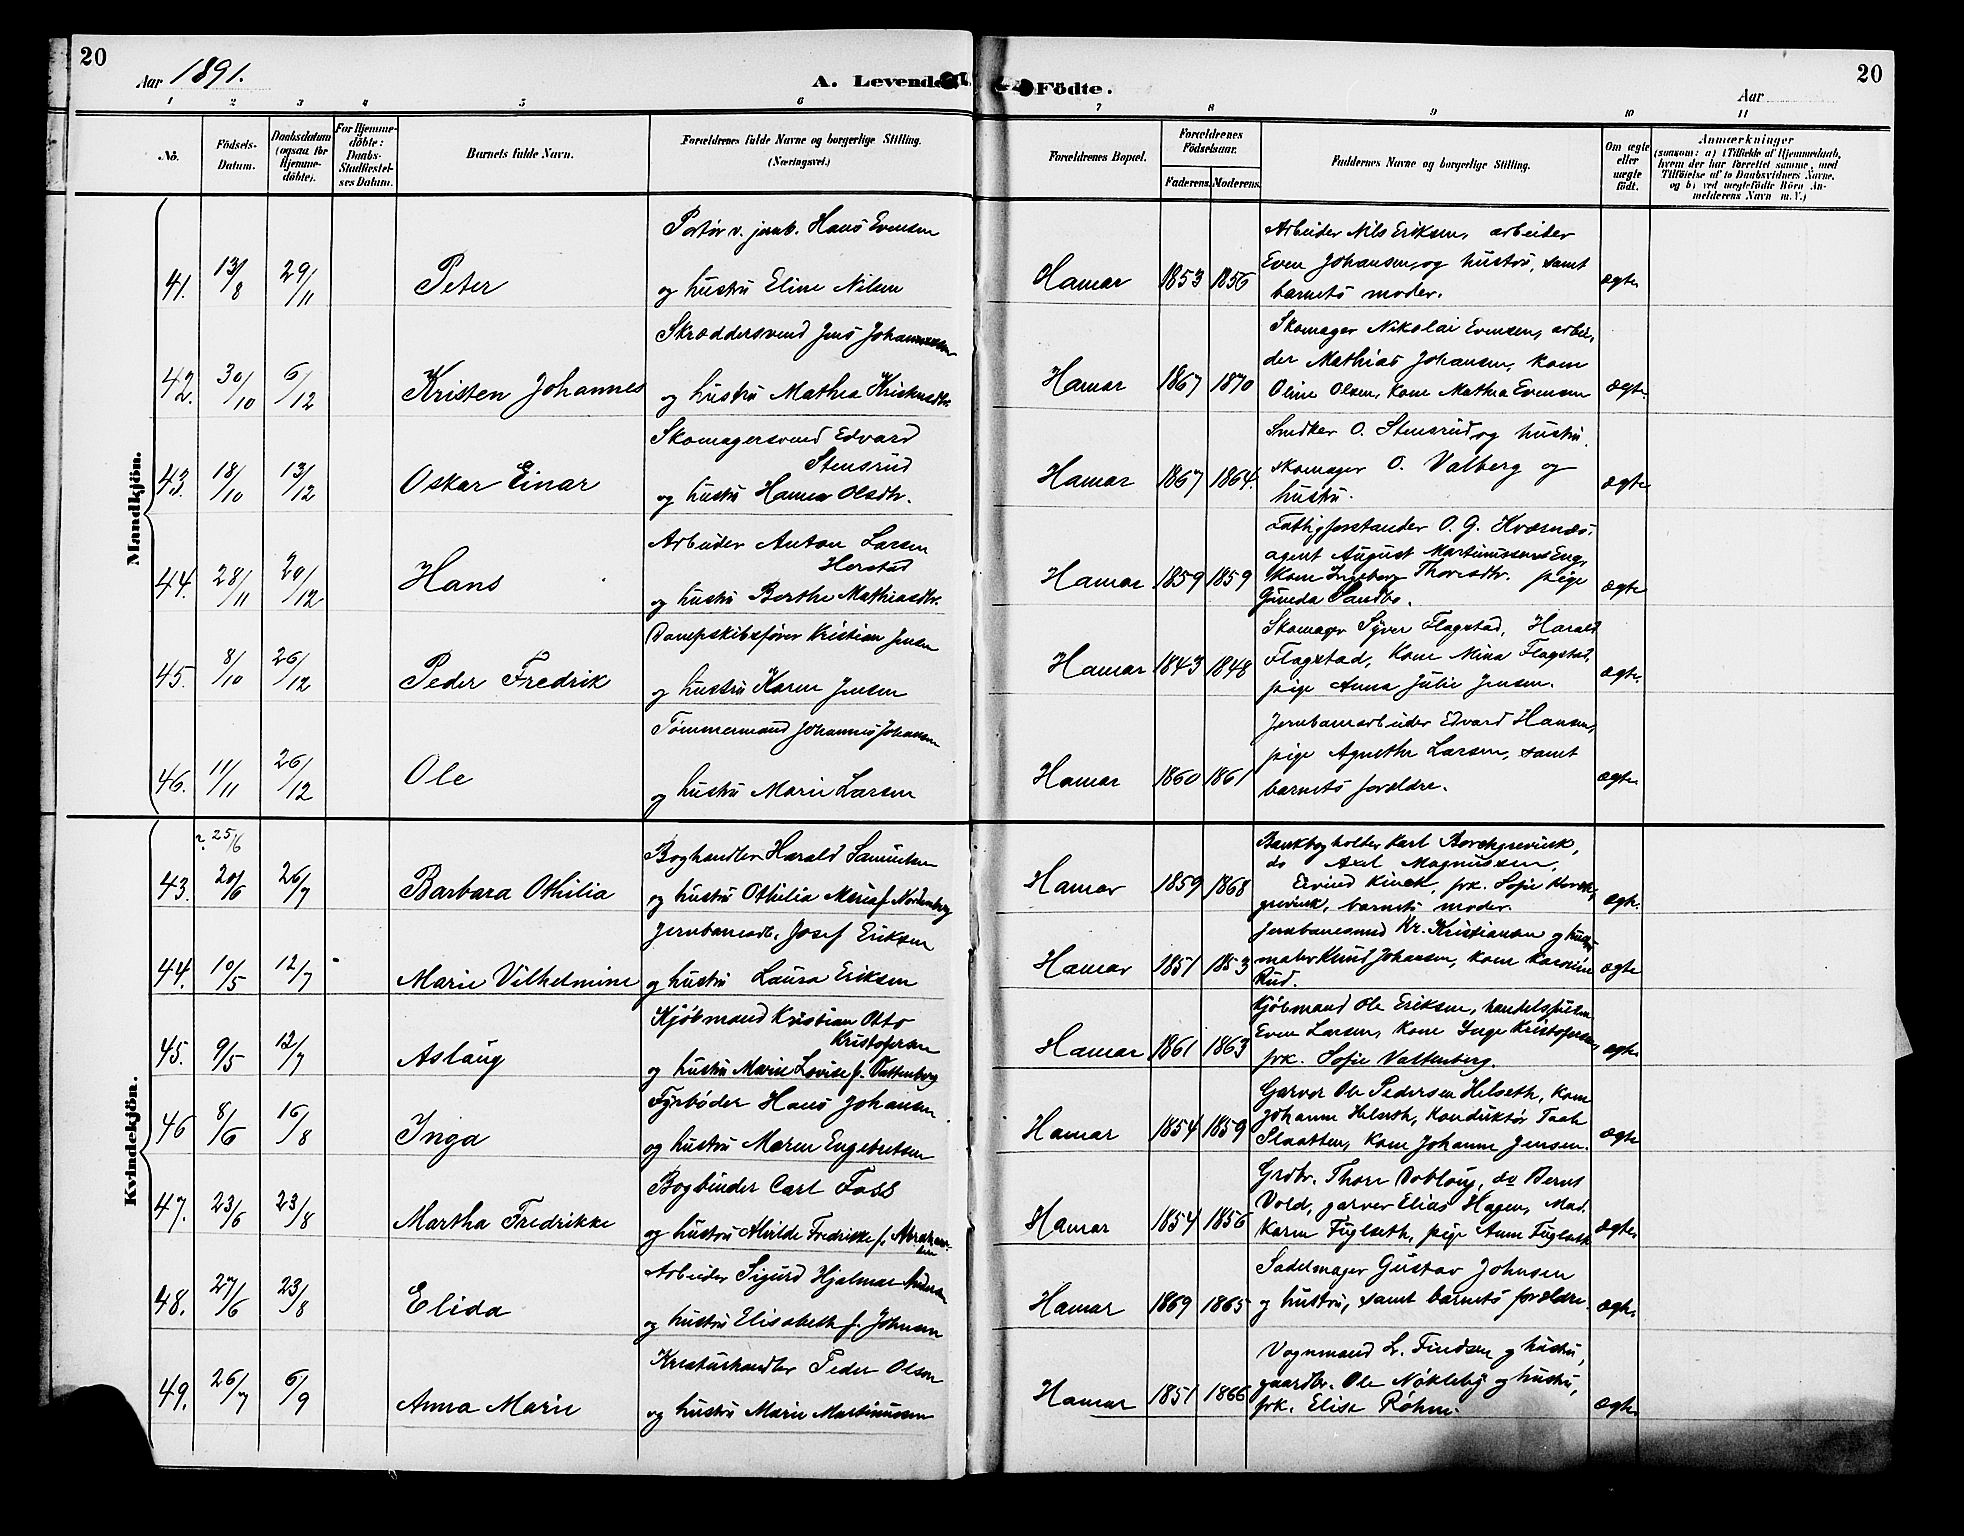 20
Aar 1891.
A. Levende
Födte.
Aar
20
1 2 3 4 5 6 7 8 9 10 11
No.
Födsels-
Datum.
Daabsdatum
(ogsaa for
Hjemme-
döbte).
For Hjemme-
döbte:
Daabs-
Stadfæstel-
ses Datum.
Barnets fulde Navn.
Forældrenes fulde Navne og borgerlige Stilling.
(Næringsvei.)
Forældrenes Bopæl.
Forældrenes
Födselsaar.
Faderens. Moderens.
Faddernes Navne og borgerlige Stilling.
Om ægte
eller
uægte
födt.
Anmærkninger
(saasom: a) i Tilfælde af Hjemmedaab,
hvem der har forrettet samme, med
Tilföielse af to Daabsvidners Navne,
og b) ved uægtefödte Börn An-
melderens Navn m. V.)
Mandkjön.
41. 13/8 29/11 Peter
Portør v. jernb. Hans Evensen
og hustru Eline Nilsen
Hamar 1853 1856
Arbeider Nils Eriksen, arbeider
Even Johansen, og hustru, samt
barnets moder.
ægte
42. 30/10 6/12 Kristen Johannes
Skræddersvend Jens Johannessen
og hustru Mathea Kristensdtr.
Hamar 1867 1870
Skomager Nikolai Evensen, arbei,
der Mathias Johansen, kone
Oline Olsen, kone Mathea Evensen
ægte
43. 18/10 13/12 Oskar Einar
Skomagersvend Edvard
Stensrud
og hustru Hanna Olsdtr.
Hamar 1867 1864.
Snedker O. Stensrud og hustru,
skomager O. Valberg og
hustru.
ægte
44. 28/11 20/12 Hans
Arbeider Anton Larsen
Herstad
og hustru Berthe Mathiasdtr.
Hamar 1859 1859
Fattigforstander O. G. Kværnæs,
agent August Martinussens Eng,
Kone Ingeborg Thoresdtr. pige
Sandbo.
ægte
45. 8/10 26/12 Peder Fredrik
Dampskibsfører Kristian Jensen
og hustru Karen Jensen
Hamar 1843 1848
Skomager Syver Flagstad, Harald
Flagstad, Kone Mina Flagstad,
pige Anna Julie Jensen.
ægte.
46. 11/11 26/12 Ole
Tømmermand Johannes Johansen
og hustru Marie Larsen
Hamar 1860 1861
Jernbanearbeider Edvard Hansen,
pige Agnethe Larsen, samt
barnets forældre.
ægte
Kvindekjön.
43. ?. 25/6 20/6 26/7 Barbara Othilia
Boghandler Harald Samuelsen
og hustru Othilia Maria f. Nordenborg
Hamar 1859 1868
Bankbogholder Karl Borchgrevink,
do Axel Magnussen,
Eivind Kinck, frk. Sofie Borch,
grevink, barnets moder.
ægte.
44. 10/5 12/7 Marie Vilhelmine
Jernbanearb. Josef Eriksen
og hustru Laura Eriksen
Hamar 1851 1853
Jernbanesmed Kr. Kristiansen og hustru
maler Knud Johansen, kone Karoline
Rud.
ægte
45. 9/5 12/7 Aslaug
Kjøbmand Kristian Otto
Kristofersen
og hustru Marie Lovise f. Vattenberg
Hamar 1861 1863
Kjøbmand Ole Eriksen, handelsfuldm
Even Larsen, Kone Inga Kristofersen,
frk. Sofie Vattenberg.
ægte
46 8/6 16/8 Inga
Fyrbøder Hans Johansen
og hustru Maren Engebretsen
Hamar 1854 1859
Garver Ole Pedersen Helseth, Kone
Johanne Helseth, Konduktør
Slaatten, Kone Johanne Jensen.
ægte
47. 23/6 23/8 Martha Fredrikke
Bogbinder Carl Foss
og hustru Alvilde Fredrikke f. Abraham-
sen
Hamar 1854 1856
Grdbr. Thore Dobloug, do Bernt
Vold, garver Elias Hagen, Mad.
Karen Fuglseth, pige Anne Fuglseth
ægte
48. 27/6 23/8 Elida
Arbeider Sigurd Hjalmar Andersen
og hustru Elisabeth f. Johnsen
Hamar 1869 1865
Sadelmager Gustav Johnsen
og hustru, samt barnets forældre.
ægte
49. 26/7 6/9 Anna Marie
Kreaturhandler Peder Olsen
og hustru Marie Martinussen
Hamar 1851 1866
Vognmand L. Findsen og hustru,
gaardbr. Ole Nøkleby og hustru,
frk. Elise Røhm.
ægte